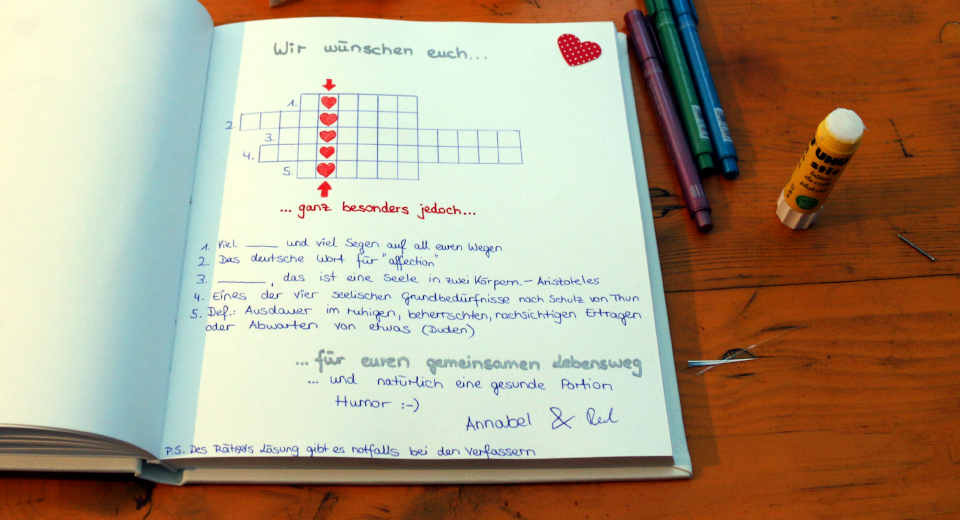 Wir wünschen euch...
1.
2.
3.
4.
5.
... ganz besonders jedoch...
1. Viel ____ und viel Segen auf all euren Wegen
2. Das deutsche Wort für "affection"
3. ____, das ist eine Seele in zwei Körpern. - Aristoteles
4. Eines der vier seelischen Grundbedürfnisse nach Schulz von Thun
5. Def.: Ausdauer im ruhigen, beherrschten, nachsichtigen Ertragen
oder Abwarten von etwas (Duden)
... für euren gemeinsamen Lebensweg
... und natürlich eine gesunde Portion
Humor :-)
Annabel &
P.S. Des Rätsels Lösung gibt es notfalls bei den Verfassern